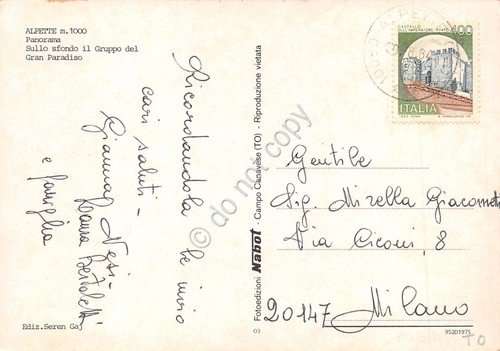 ALPETTE m.1000
Panorama
Sullo sfondo il Gruppo del
Gran Paradiso
Ricordandola le invio
cari saluti -
e famiglia
Ediz. Seren Gaj
Fotoedizioni Nabot - Campo Canavese (TO) - Riproduzione vietata
G3
do not copy
CASTELLO
DELL'IMPERATORE - PRATO
400
ITALIA
Gentile
Sig. Mirella Giacometti
Via Ciconi, 8
20147 Milano
95201975
TO